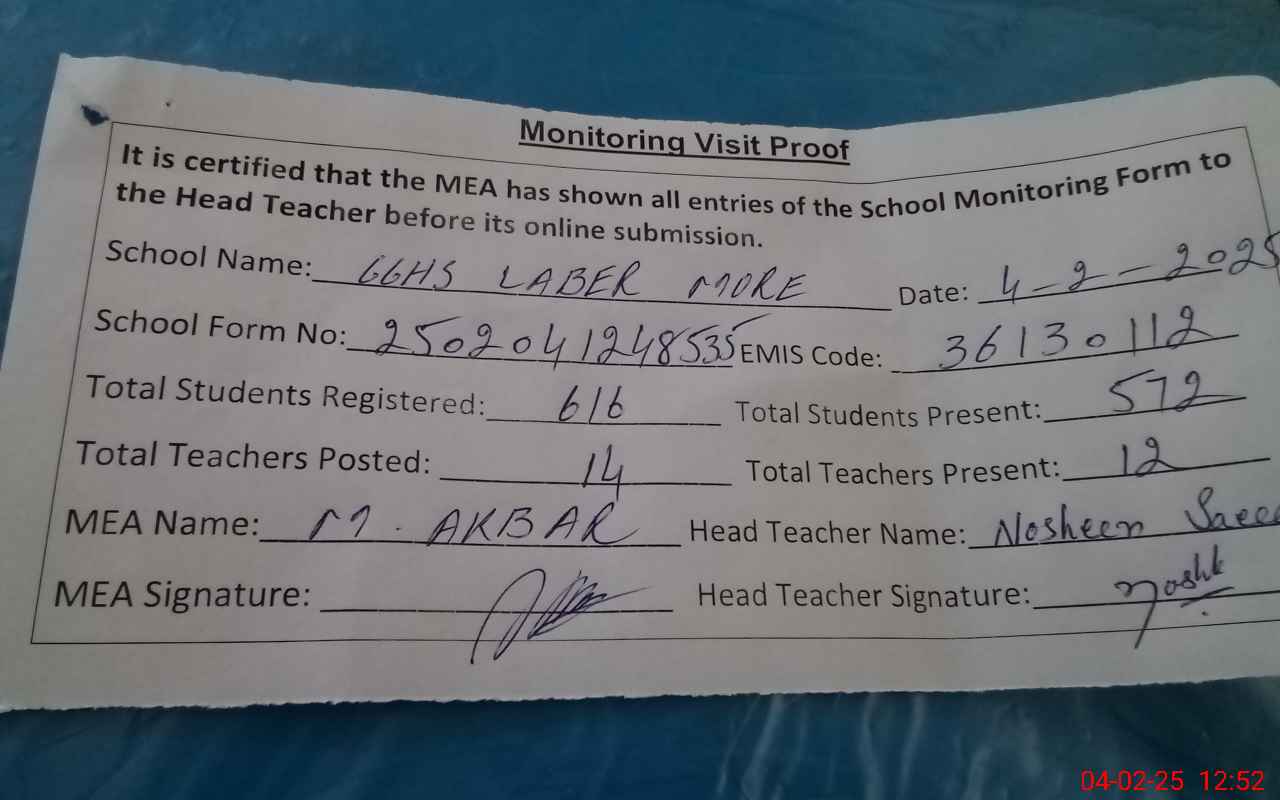 Monitoring Visit Proof
It is certified that the MEA has shown all entries of the School Monitoring Form to
the Head Teacher before its online submission.
School Name: GGHS LABER MORE Date: 4-2-2025
School Form No: 2502041248535 EMIS Code: 36130112
Total Students Registered: 616 Total Students Present: 572
Total Teachers Posted: 14 Total Teachers Present: 12
MEA Name: M. AKBAR Head Teacher Name: Nosheen
MEA Signature: Head Teacher Signature:
04-02-25 12:52